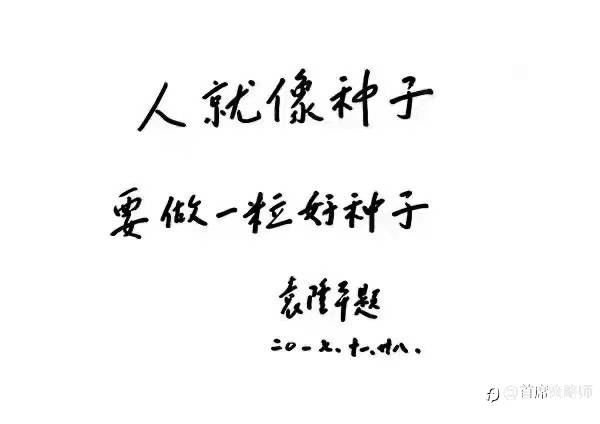 人就像种子
要做一粒好种子
袁隆平题
二〇一七.十一.廿八.
@首席攻略师